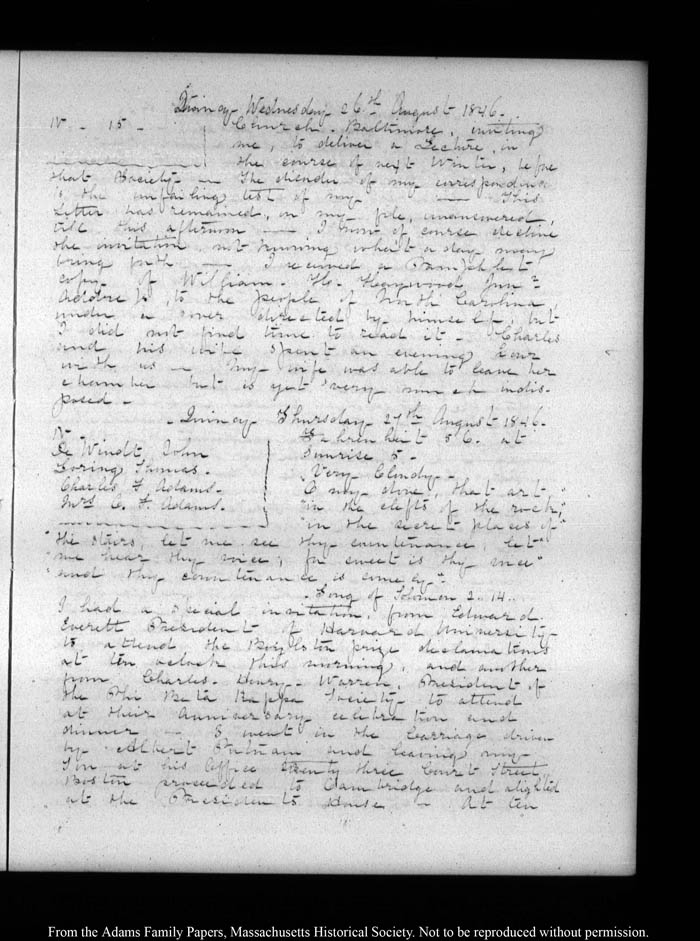 Quincy Wednesday 26th August 1846.
IV - 15 - Church. Baltimore, inviting
me, to deliver a Lecture, in
the course of next Winter, before
that Society - The of my corresponding
is the unfailing test of my — This
Letter has remained, on my file, unanswered,
till this afternoon — I must of course decline
the invitation, not knowing what a day may
bring forth — I received a Pamphlet
copy of William. H. Haywood Junr.
Address, to the people of North Carolina,
under a cover directed by himself, but
I did not find time to read it - Charles
and his wife spent an evening hour
with us - My wife was able to leave her
chamber but is yet very much indis-
posed -
Quincy Thursday 27th August 1846.
IV Fahrenheit 56. at
De Windt, John Sunrise 5 -
Loring Thomas. Very Cloudy -
Charles F Adams. O my dove, that art
Mrs C. F. Adams. "in the clefts of the rock,
"in the secret places of
"the stairs, let me see thy countenance, let"
"me hear thy voice; for sweet is thy voice"
"and thy countenance is comely"
Song of Solomon 2. 14.
I had a special invitation, from Edward.
Everett President of Harvard University
to attend the Boylston prize declamations
at ten oclock this morning, and another
from Charles. Henry. Warren, President of
the Phi Beta Kappa Society to attend
at their anniversary celebration and
dinner — I went in the Carriage driven
by Albert Putnam and leaving my
Son at his Office twenty three Court Street,
Boston proceeded to Cambridge and alighted
at the Presidents House - At ten
From the Adams Family Papers, Massachusetts Historical Society. Not to be reproduced without permission.